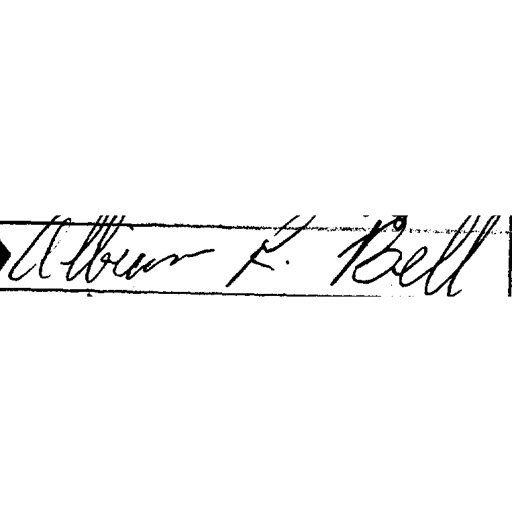 Albian K. Bell